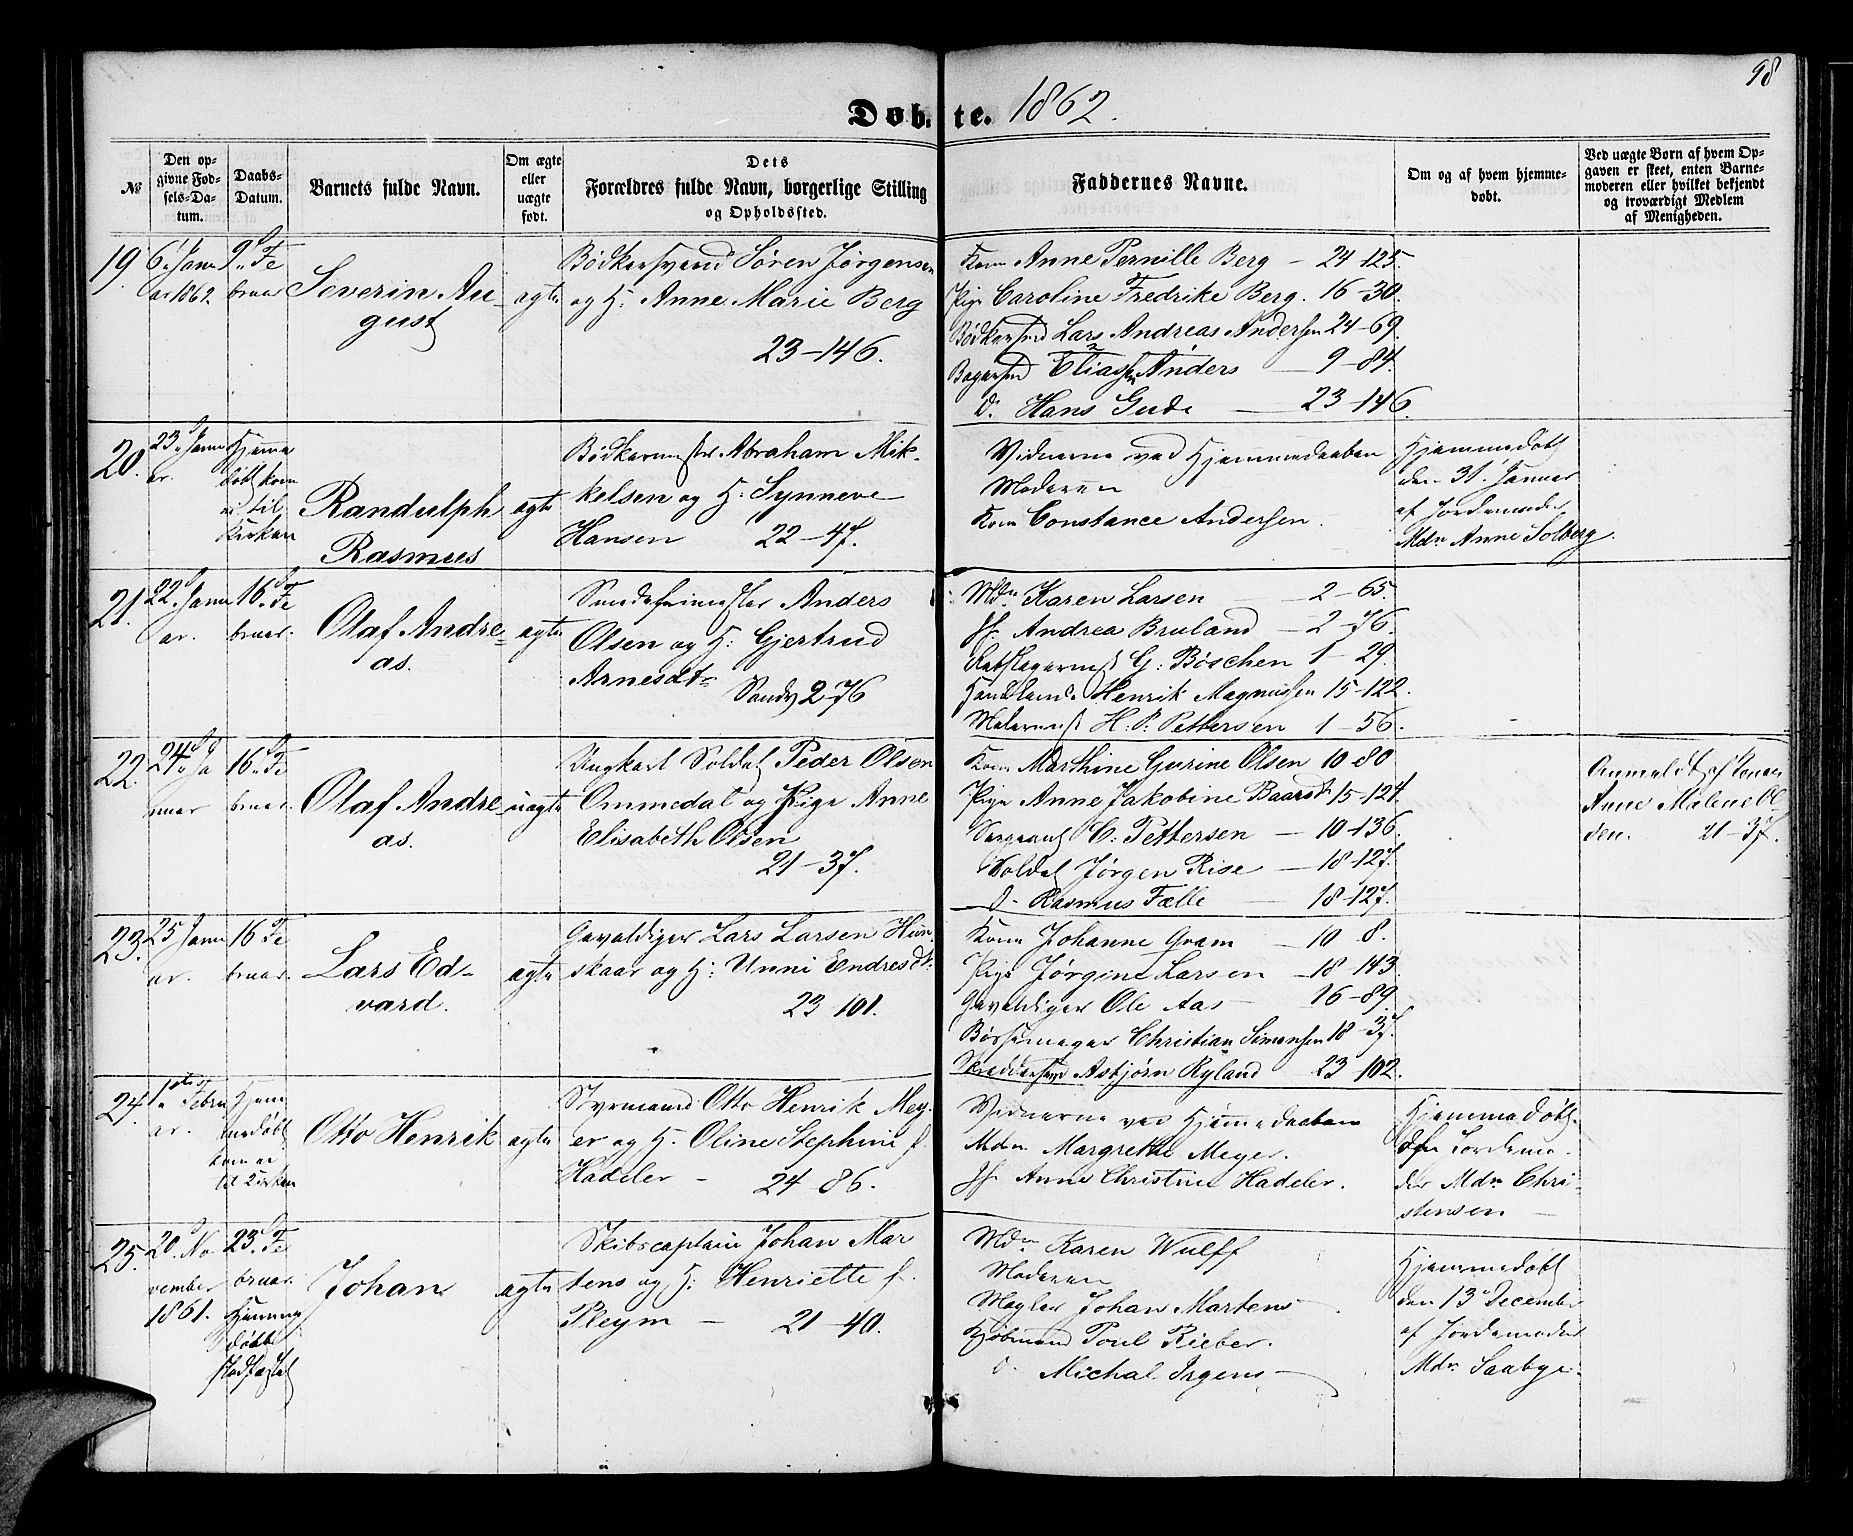 98
Døbte. 1862.
№
Den opgivne Fødsels-Datum.
Daabs-Datum.
Barnets fulde Navn.
Om ægte eller uægte født.
Dets Forældres fulde Navn, borgerlige Stilling og Opholdssted.
Faddernes Navne.
Om og af hvem hjemmedøbt.
Ved uægte Børn af hvem Opgaven er skeet, enten Barnemoderen eller hvilket bekjendt og troværdigt Medlem af Menigheden.
19.
6' Janu
ar 1862.
9' Fe
bruar
Severin Au
gust
ægte
Bødkersvend Sören Jörgensen
og H: Anne Marie Berg
23-146.
Kone Anne Pernille Berg – 24-125.
Pige Caroline Fredrike Berg. 16-30.
Bødkersvd Lars Andreas Andersen 24-69.
Bagersvd Eliassen Anders – 9-84.
d. Hans Gude – 23-146.
20.
23' Janu
ar.
Hjemme
døbt kom
ei til
Kirken
Randulph
Rasmus
ægte
Bødkermester Abraham Mik-
kelsen og H: Synneve
Hansen 22-47.
Vidnerne ved Hjemmedaaben
Moderen
Kone Constance Andersen.
Hjemmedøbt
den 31' Januar
af Jordemoder
Mdm Anne Solberg.
21.
22' Janu
ar.
16' Fe
bruar.
Olaf Andre-
as.
ægte
Smedesvimester Anders
Olsen og H: Gjertrud
Arnesdt-
Sandv 2-76
Mdm Karen Larsen – 2-65
Jf Andrea Bruland – 2-76.
G: Böschen 1-29.
Henrik Magnussen 15-122.
Malermest H. P. Pettersen 1-56.
22.
24' Ja
nuar
16' Fe
bruar.
Olaf Andre-
as.
uægte
Ungkarl Soldat Peder Olsen
Ommedal og Pige Anne
Elisabeth Olsen
21-37.
Kone Marthine Gurine Olsen 10-80
Pige Anne Jakobine Baarst 15-124.
Sergeant C: Pettersen – 10-136.
Soldat Jörgen Rise – 18-127.
d. Rasmus Fælle – 18-127.
Anmeldt af Konen
Anne Malene Ol-
sen. 21-37.
23.
25 Janu
ar.
16 Fe
bruar.
Lars Ed-
vard.
ægte
Gevaldiger Lars Larsen Hun-
skaar og H: Unni Endresdt:
23-101.
Kone Johanne Gram – 10-8.
Pige Jörgine Larsen – 18-143.
Gevaldiger Ole Aas – 16-89.
Bøssemager Christian Simonsen 18-37.
Skreddersvd Asbjörn Ryland 23-102.
24.
1ste Febru
ar.
Hjem
medøbt
kom ei
til Kirken
Otto Henrik
ægte
Styrmand Otto Henrik Mey-
er og H. Oline Stephine f.
Hadeler – 24-86.
Vidnerne ved Hjemmedaaben
Mdm Margrethe Meyer.
Jf Anne Christine Hadeler.
Hjemmedøbt
Jordemo-
der Mdm Chri-
stensen –
25.
20' No
vember
1861.
23' Fe
bruar.
Hjemme
døbt
stadfæstet
Johan
ægte
Skibscaptain Johan Mar
tens og H: Henriette f.
Pleym – 21-40.
Mdm Karen Wulff
Moderen
Mægler Johan Martens
Kjøbmand Poul Rieber.
d. Michal Irgens –
Hjemmedøbt
den 13' December
af Jordemoder
Mdm Saabye.